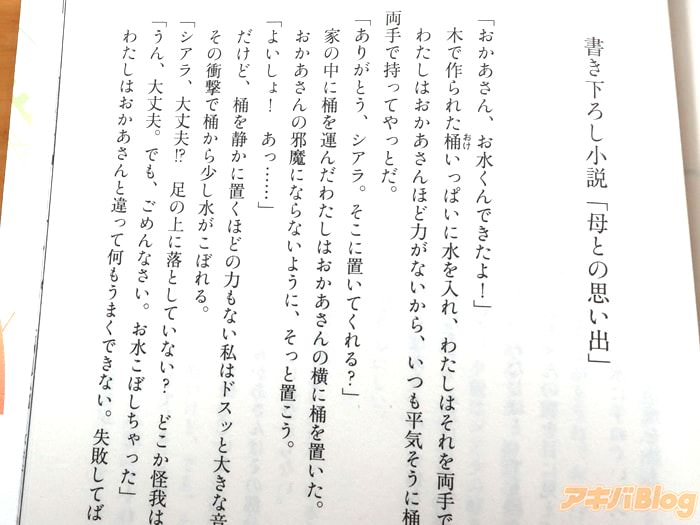 書き下ろし小説「母との思い出」
「おかあさん、お水くんできたよ！」
木で作られた桶いっぱいに水を入れ、わたしはそれを両手で
おけ
わたしはおかあさんほど力がないから、いつも平気そうに桶
両手で持ってやっとだ。
「ありがとう、シアラ。そこに置いてくれる？」
家の中に桶を運んだわたしはおかあさんの横に桶を置いた。
おかあさんの邪魔にならないように、そっと置こう。
「よいしょ！　あっ……」
だけど、桶を静かに置くほどの力もない私はドスッと大きな音
その衝撃で桶から少し水がこぼれる。
「シアラ、大丈夫!?　足の上に落としていない？　どこか怪我は
「うん、大丈夫。でも、ごめんなさい。お水こぼしちゃった」
わたしはおかあさんと違って何もうまくできない。失敗してば
アキバBlog